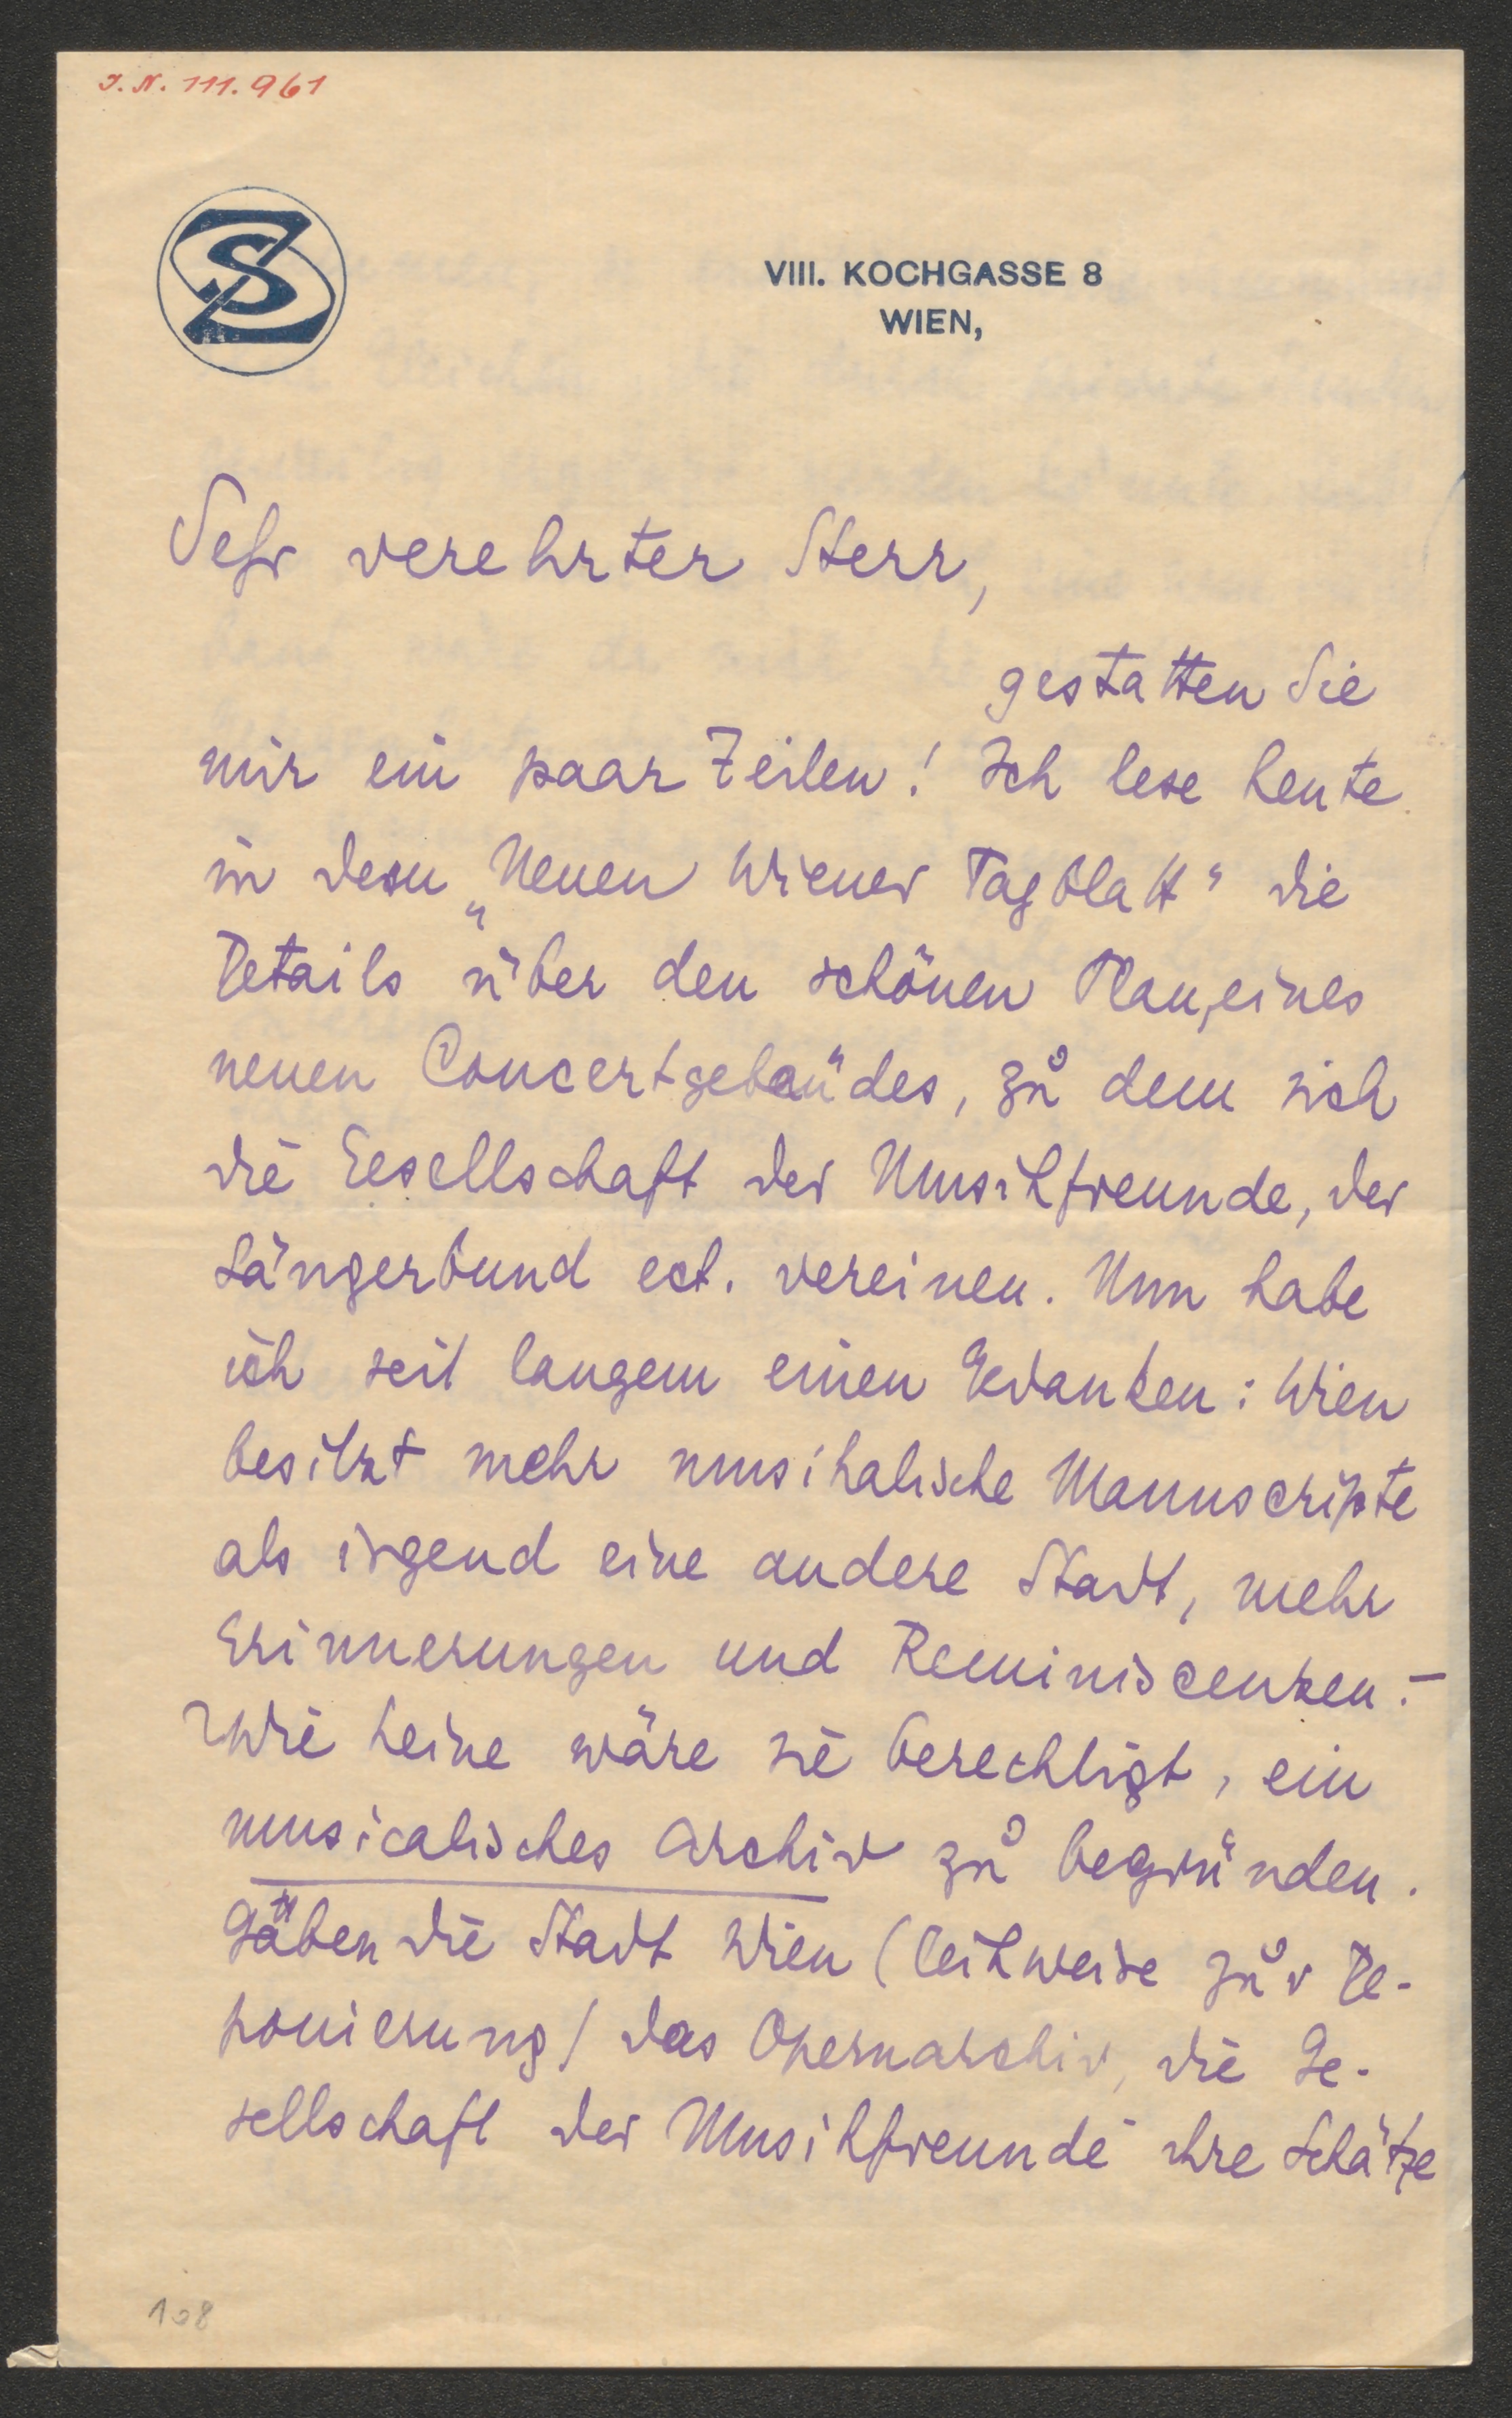 I. N. 111.961
SZ
VIII. KOCHGASSE 8
WIEN,
Sehr verehrter Herr,
gestatten Sie
mir ein paar Zeilen! Ich lese heute
in dem „Neuen Wiener Tagblatt" die
Details über den schönen Plan, eines
neuen Concertgebäudes, zu dem sich
die Gesellschaft der Musikfreunde, der
Sängerbund ect. vereinen. Nun habe
ich seit langem einen Gedanken: Wien
besitzt mehr musikalische Manuscripte
als irgend eine andere Stadt, mehr
Erinnerungen und Reminiscenzen. –
Wie keine wäre sie berechtigt, ein
musicalisches Archiv zu begründen.
Gäben die Stadt Wien (leihweise zur De-
ponierung) das Opernarchiv, die Ge-
sellschaft der Musikfreunde ihre Schätze
108